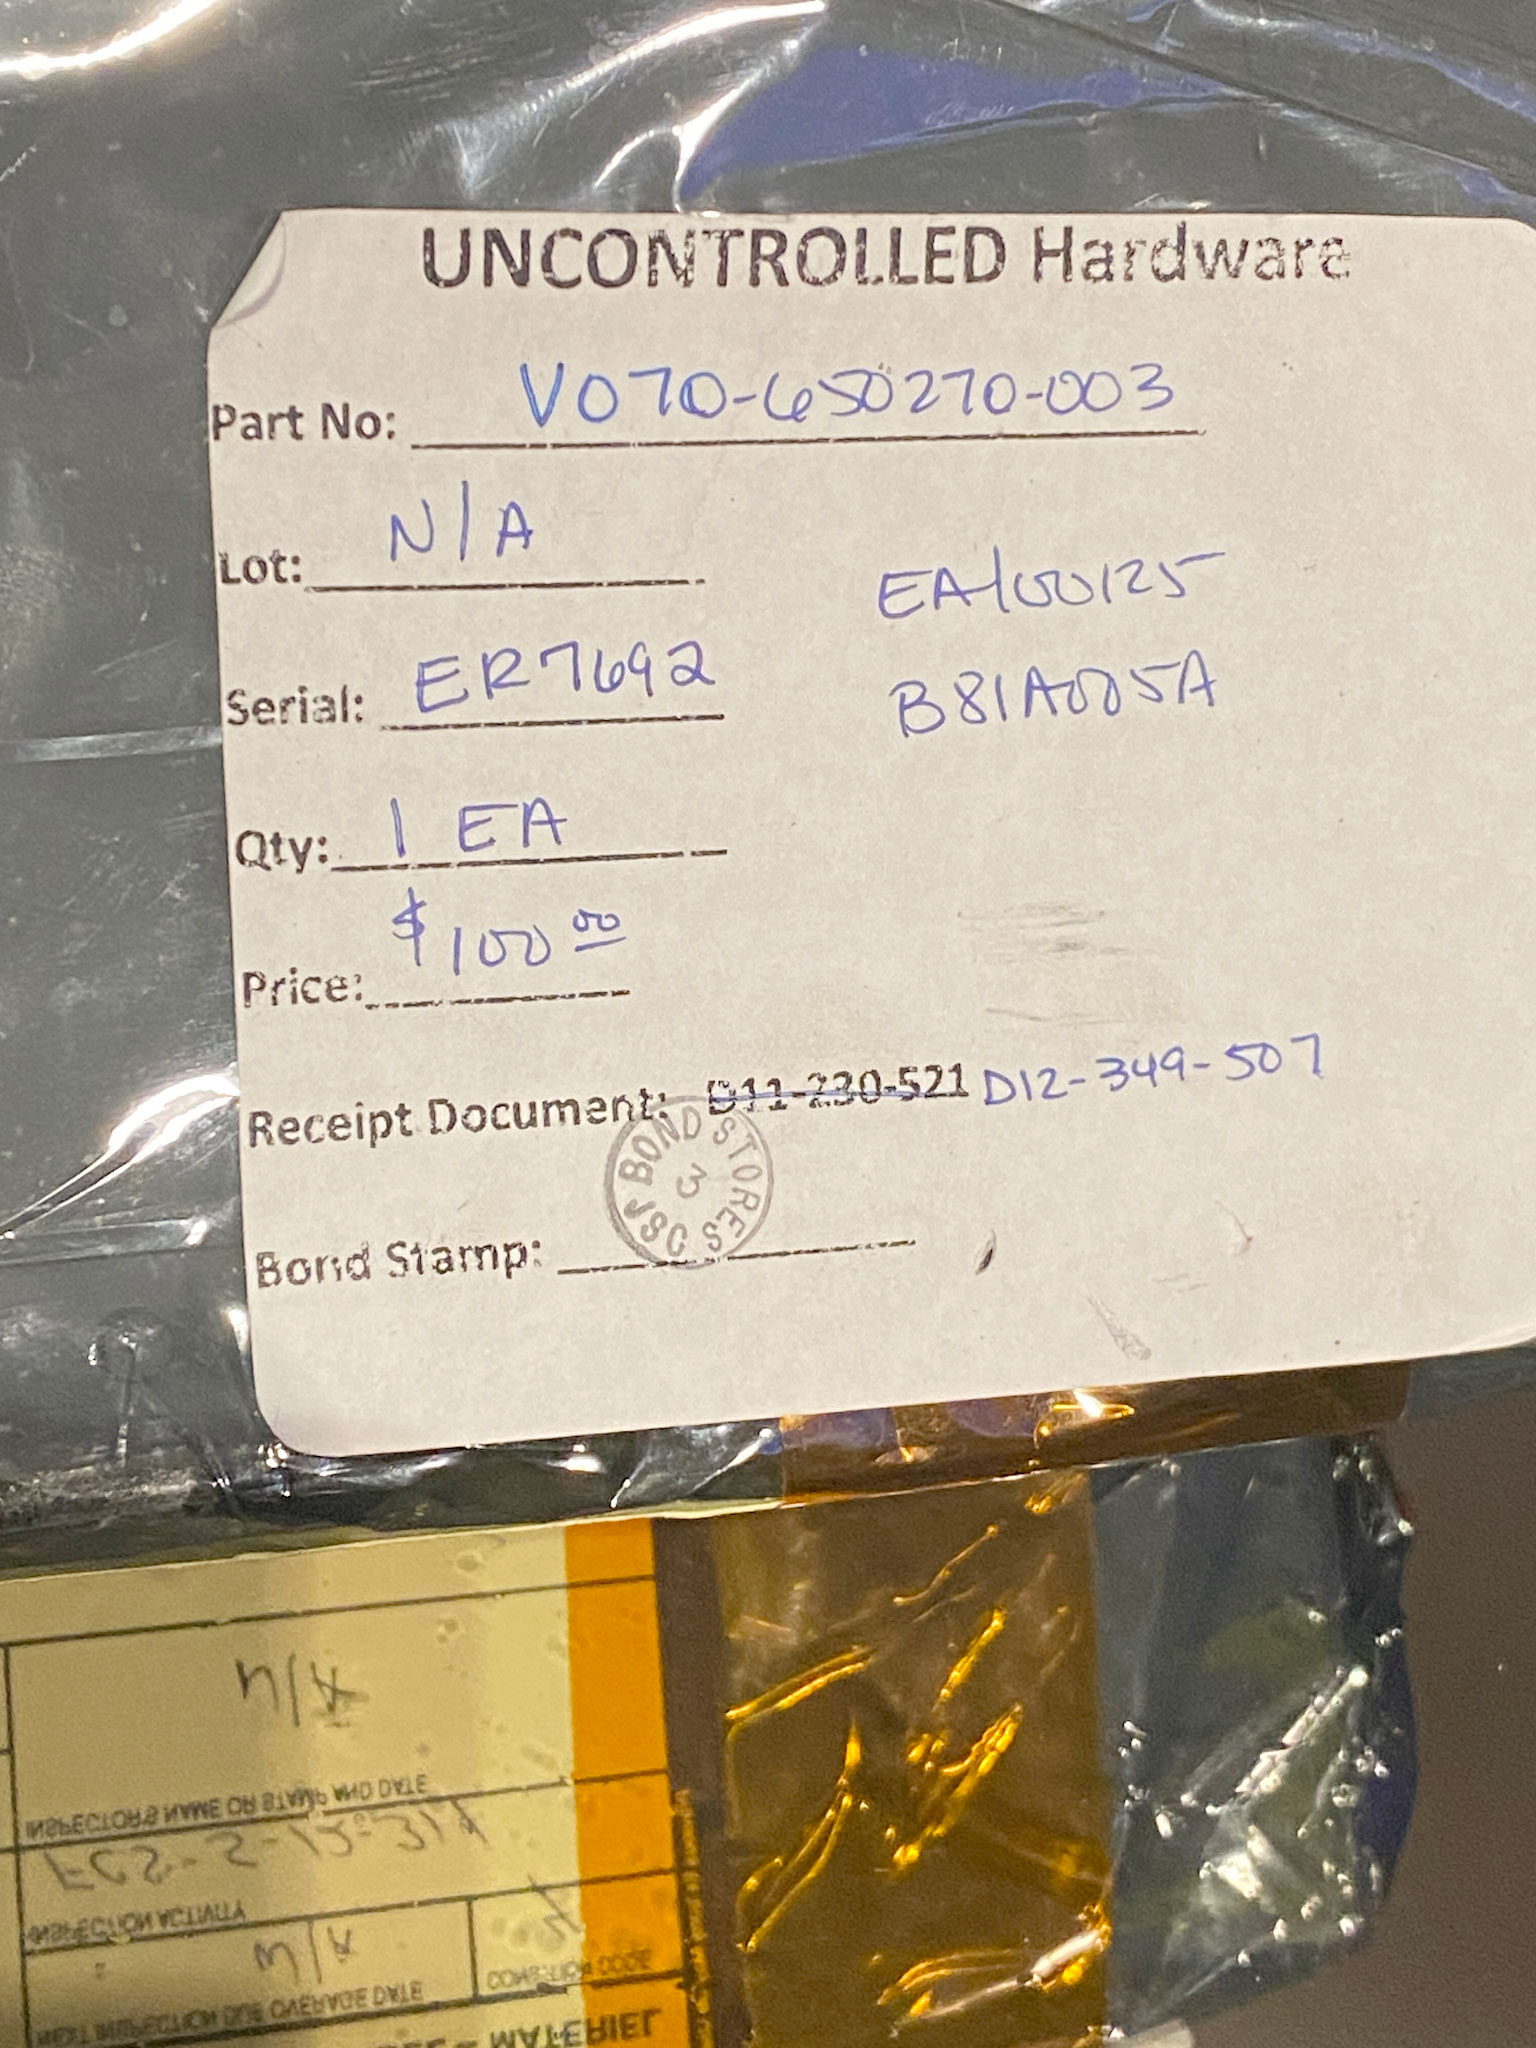 UNCONTROLLED Hardware
Part No: V070-650270-003
Lot: N/A
EA100125
Serial: ER7692
B81A005A
Qty: 1 EA
Price: $100.00
Receipt Document: D11-230-521 D12-349-507
OSA BOND STORES
3
Bond Stamp:
N/A
INSPECTOR'S NAME OR STAMP AND DATE
INSPECTION ACTIVITY
N/A
CONDITION CODE
NEXT INSPECTION DUE OVERAGE DATE
MATERIEL